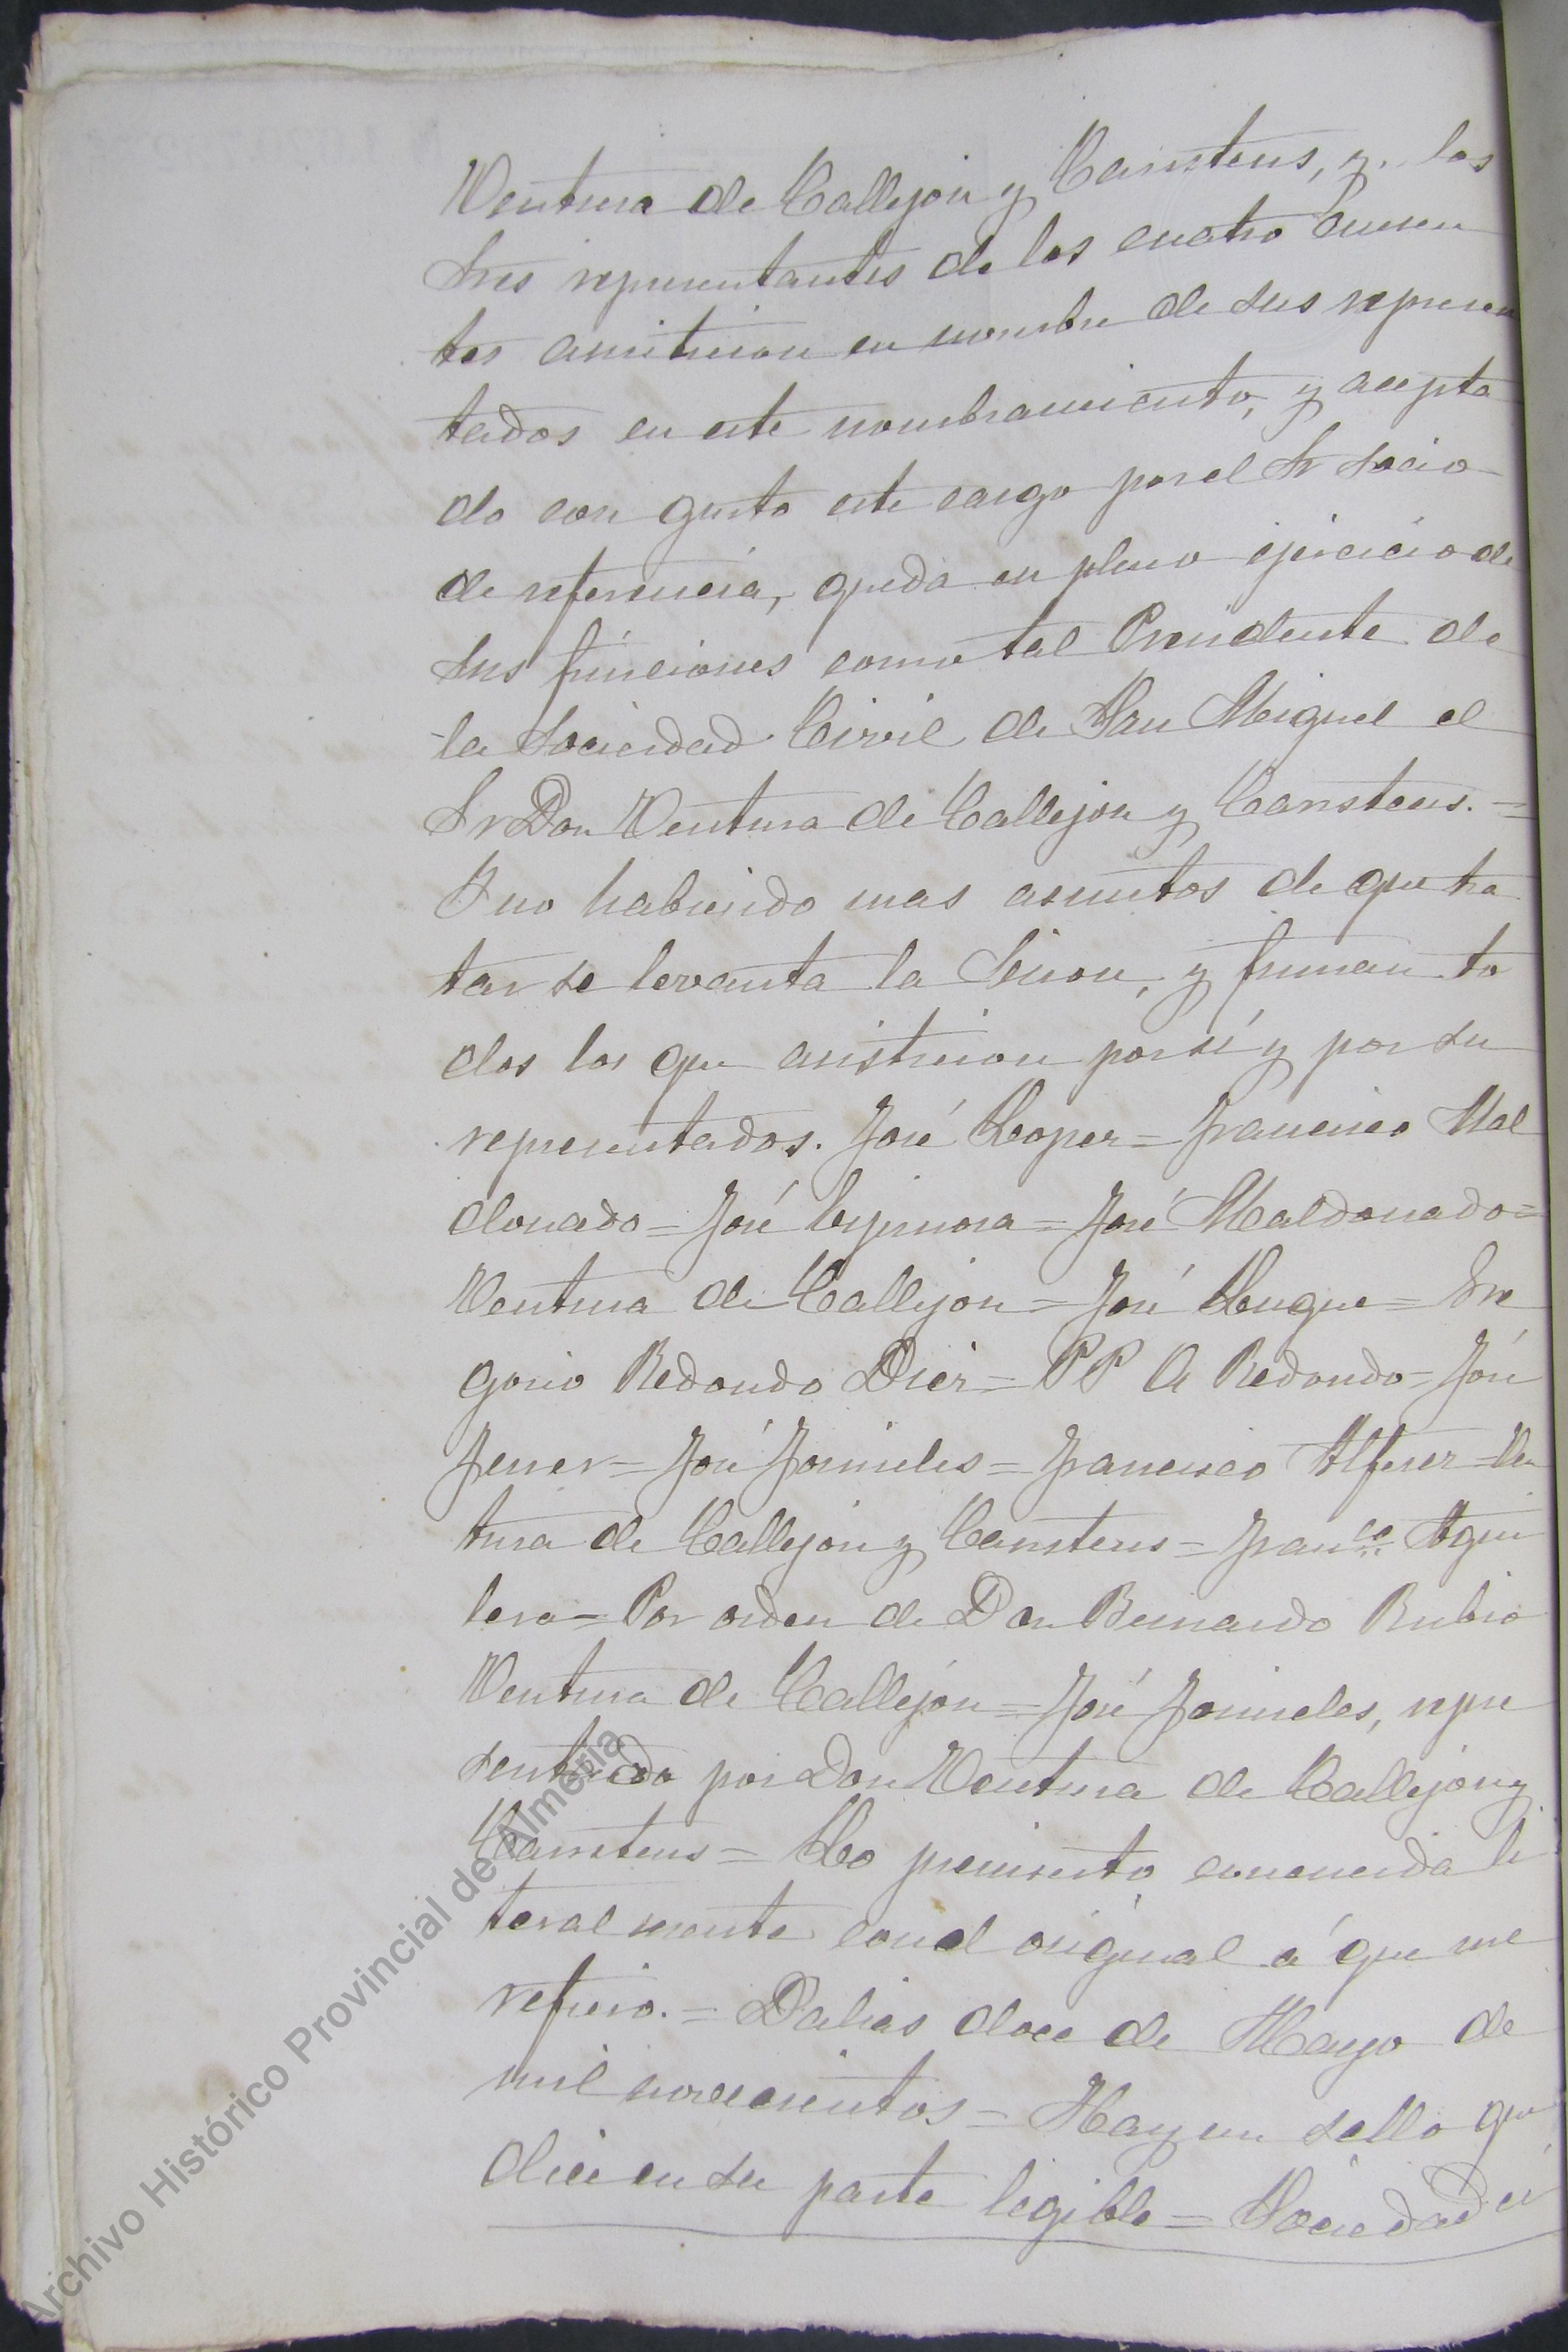 Ventura de Callejon y Carnsteus, y los
Sres representantes de los cuatro Cuaren
tos asintieron en nombre de sus represen
tados en este nombramiento, y acepta
do con gusto este cargo por el Sr Socio
de referencia, queda en pleno ejercicio de
sus funciones como tal Presidente de
la Sociedad Civil de San Miguel el
Sr Don Ventura de Callejon y Carnsteus. =
Y no habiendo mas asuntos de que tra
tar se levanta la Sesion, y firman to
dos los que asistieron por sí y por su
representados. José Lopez = Francisco Mal
donado = José Espinosa = José Maldonado =
Ventura de Callejon = José Luque = Gre
gorio Redondo Diez = PP A Redondo = José
Ferrer = José Fornieles = Francisco Alferez = Ven
tura de Callejon y Carnsteus = Franco Agui
lera = Por orden de Don Bernardo Rubio
Ventura de Callejón = José Fornieles, repre
sentado por Don Ventura de Callejon y
Carnsteus = Lo preinserto concuerda li
teralmente con el original á que me
refiero. = Dalias doce de Mayo de
mil novecientos = Hay un sello que
dice en su parte legible = Sociedad ci
Archivo Histórico Provincial de Almería